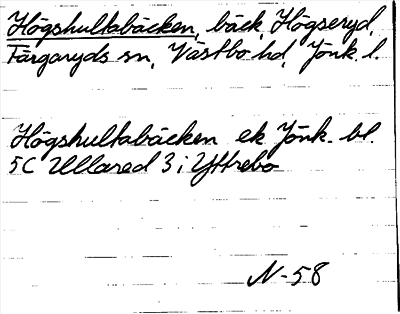 Högshultabäcken, bäck, Högseryd,
Färgaryds sn, Västbo hd, Jönk. l.
Högshultabäcken ek Jönk. bl.
5C Ullared 3 i Yttrebo
N-58